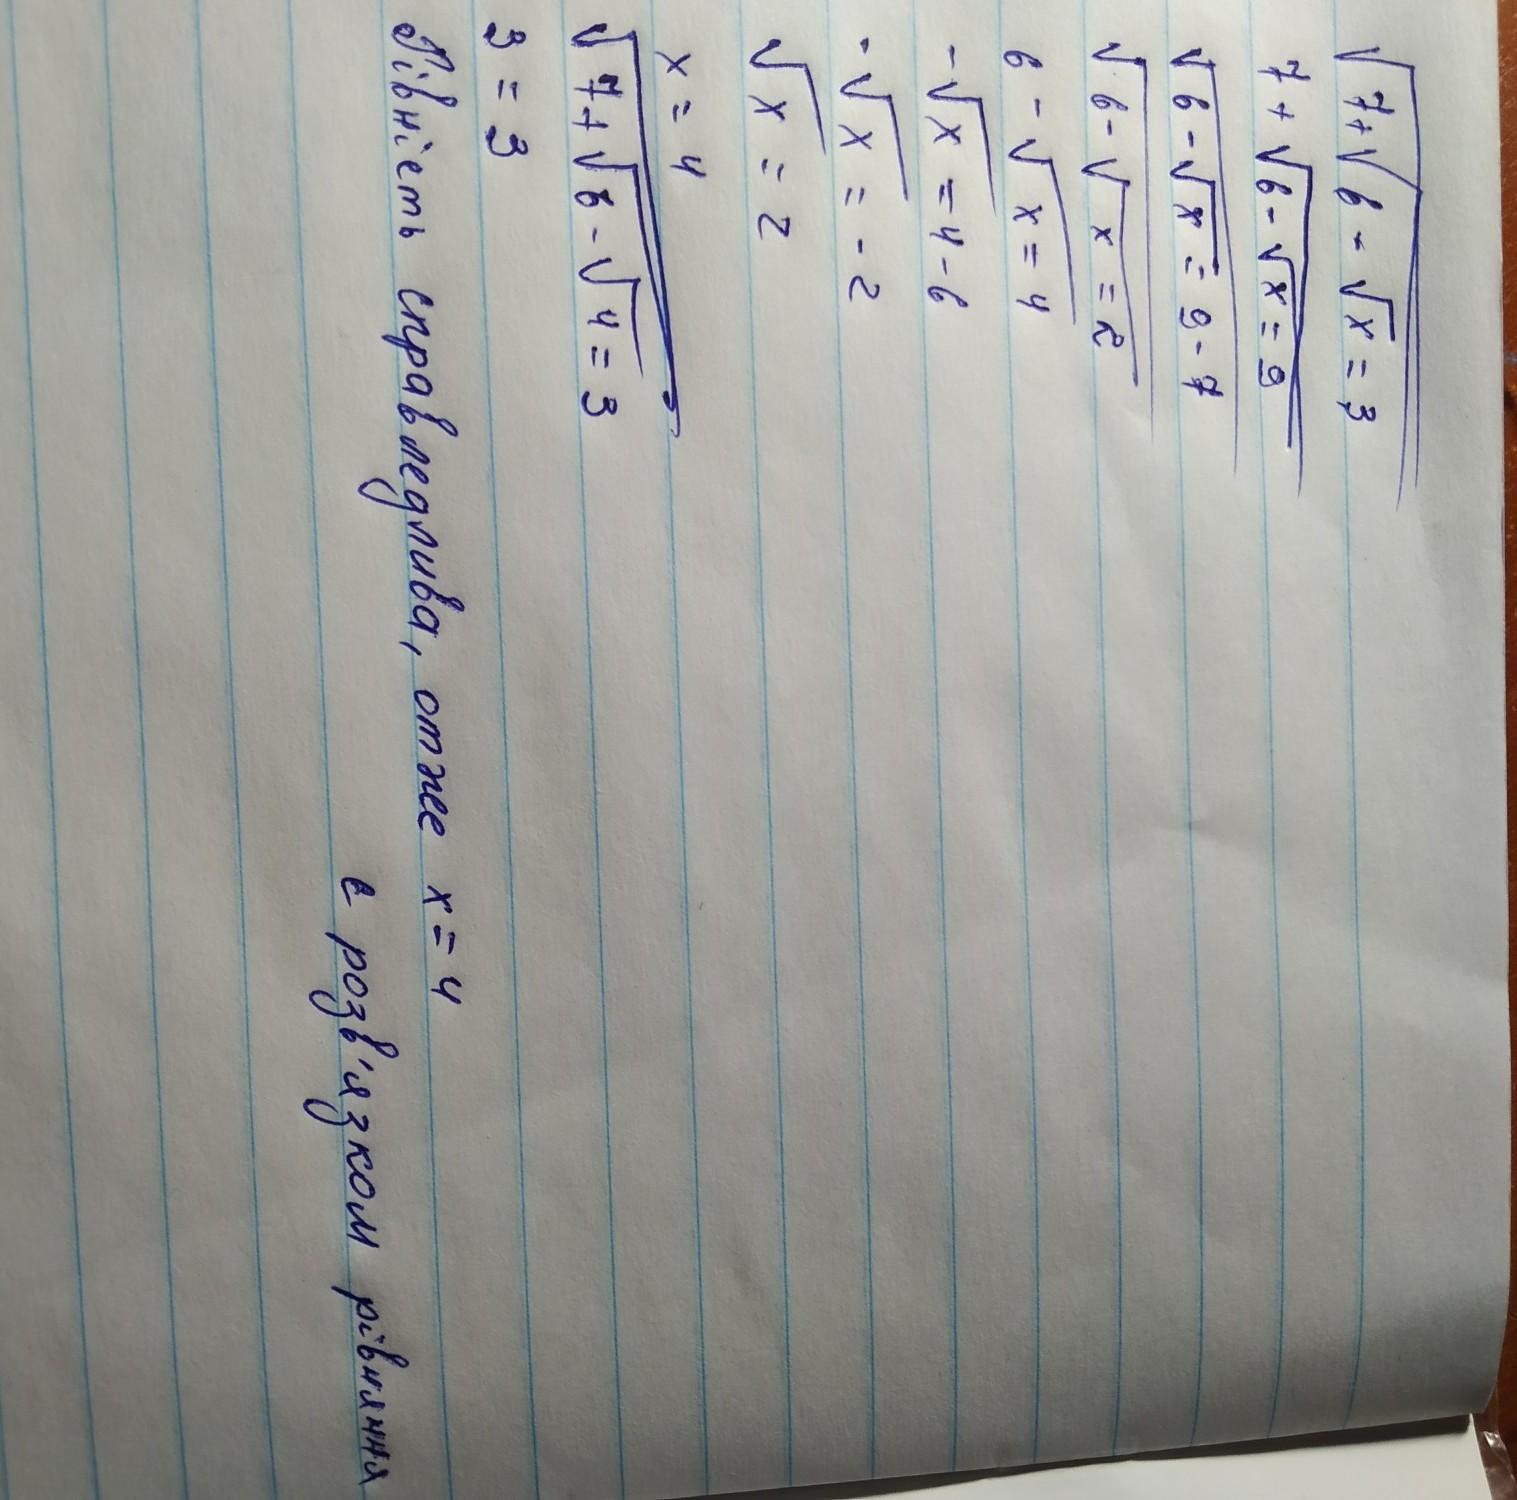 √(7+√(6-√x))=3
7+√(6-√x)=9
√(6-√x)=9-7
√(6-√x)=2
6-√x=4
-√x=4-6
-√x=-2
√x=2
x=4
√(7+√(6-√4))=3
3=3
Рівність справедлива, отже x=4
є розв'язком рівняння